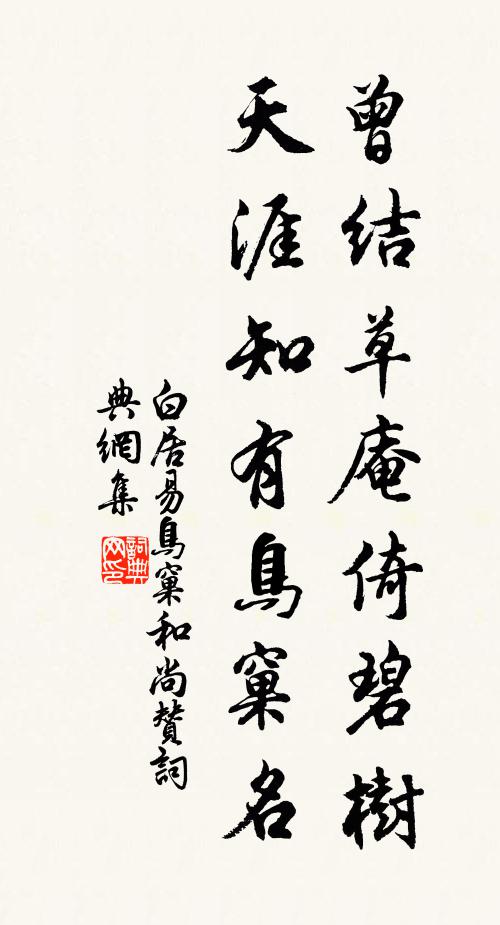 曾結草庵倚碧樹
天涯知有鳥窠名
白居易鳥窠和尚贊詞
典網集
詞典网印